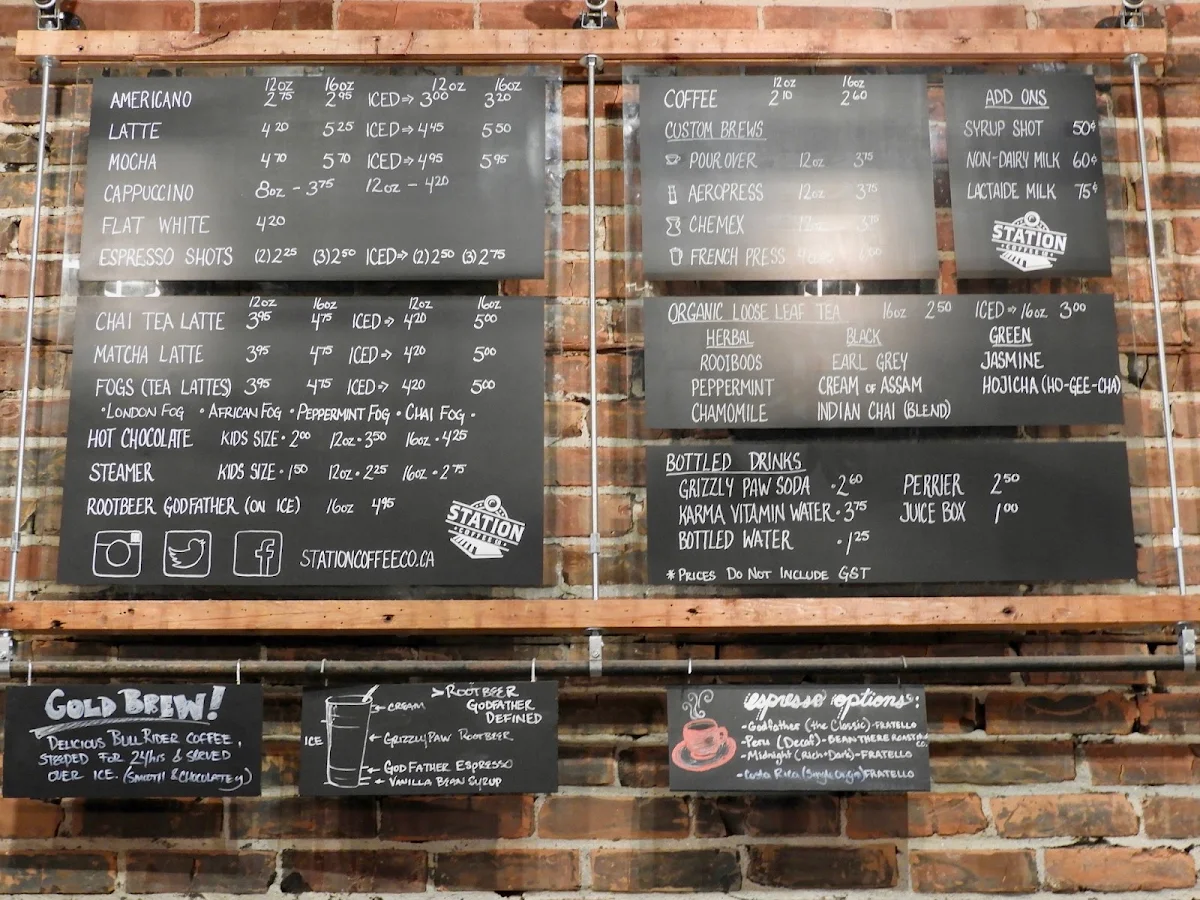 12oz 16oz 12oz 16oz
AMERICANO 2 75 2 95 ICED⇒ 3 00 3 20
LATTE 4 20 5 25 ICED⇒ 4 45 5 50
MOCHA 4 70 5 70 ICED⇒ 4 95 5 95
CAPPUCCINO 8oz - 3 75 12oz - 4 20
FLAT WHITE 4 20
ESPRESSO SHOTS (2) 2 25 (3) 2 50 ICED⇒ (2) 2 50 (3) 2 75
12oz 16oz 12oz 16oz
CHAI TEA LATTE 3 95 4 75 ICED⇒ 4 20 5 00
MATCHA LATTE 3 95 4 75 ICED⇒ 4 20 5 00
FOGS (TEA LATTES) 3 95 4 75 ICED⇒ 4 20 5 00
•LONDON FOG •AFRICAN FOG •PEPPERMINT FOG •CHAI FOG•
HOT CHOCOLATE KIDS SIZE • 2 00 12oz • 3 50 16oz • 4 25
STEAMER KIDS SIZE • 1 50 12oz • 2 25 16oz • 2 75
ROOTBEER GODFATHER (ON ICE) 16oz 4 95
STATION
COFFEE
f STATIONCOFFEECO.CA
12oz 16oz
COFFEE 2 10 2 60
CUSTOM BREWS
POUR OVER 12oz 3 75
AEROPRESS 12oz 3 75
CHEMEX 12oz 3 75
FRENCH PRESS
ADD ONS
SYRUP SHOT 50¢
NON-DAIRY MILK 60¢
LACTAIDE MILK 75¢
STATION
COFFEE
ORGANIC LOOSE LEAF TEA 16oz 2 50 ICED⇒ 16oz 3 00
HERBAL BLACK GREEN
ROOIBOOS EARL GREY JASMINE
PEPPERMINT CREAM OF ASSAM HOJICHA (HO-GEE-CHA)
CHAMOMILE INDIAN CHAI (BLEND)
BOTTLED DRINKS
GRIZZLY PAW SODA • 2 60 PERRIER 2 50
KARMA VITAMIN WATER • 3 75 JUICE BOX 1 00
BOTTLED WATER • 1 25
*PRICES DO NOT INCLUDE GST
COLD BREW!
DELICIOUS BULL RIDER COFFEE,
STEEPED FOR 24hrs & SERVED
OVER ICE. (SMOOTH & CHOCOLATEy)
>ROOTBEER
GODFATHER
DEFINED
CREAM
ICE
GRIZZLY PAW ROOTBEER
GODFATHER ESPRESSO
VANILLA BEAN SYRUP
espresso options:
-Godfather (the Classic)-FRATELLO
-Peru (Decaf)-BEAN THERE ROASTING CO.
-Midnight (Rich+Dark)-FRATELLO
-Costa Rica (Single Origin) FRATELLO